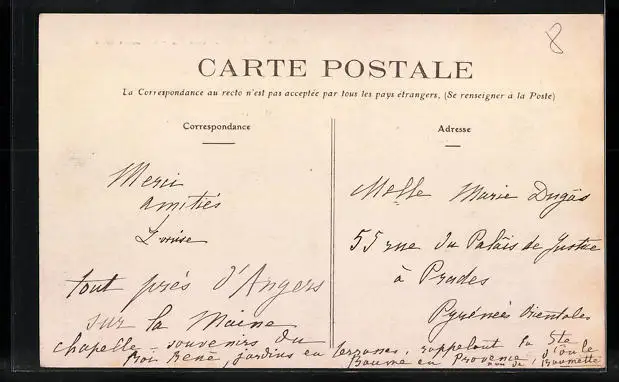 8
CARTE POSTALE
La Correspondance au recto n'est pas acceptée par tous les pays étrangers. (Se renseigner à la Poste)
Correspondance
Merci
amitiés
Louise
tout près d'Angers
sur la Maine
Adresse
Melle Marie Dugas
55 rue du Palais de Justice
à Prades
Pyrénées Orientales
chapelle - souvenirs du
Roi René, jardins en terrasses, rappelant la Ste
Baume en Provence, d'où le
nom de Baumette